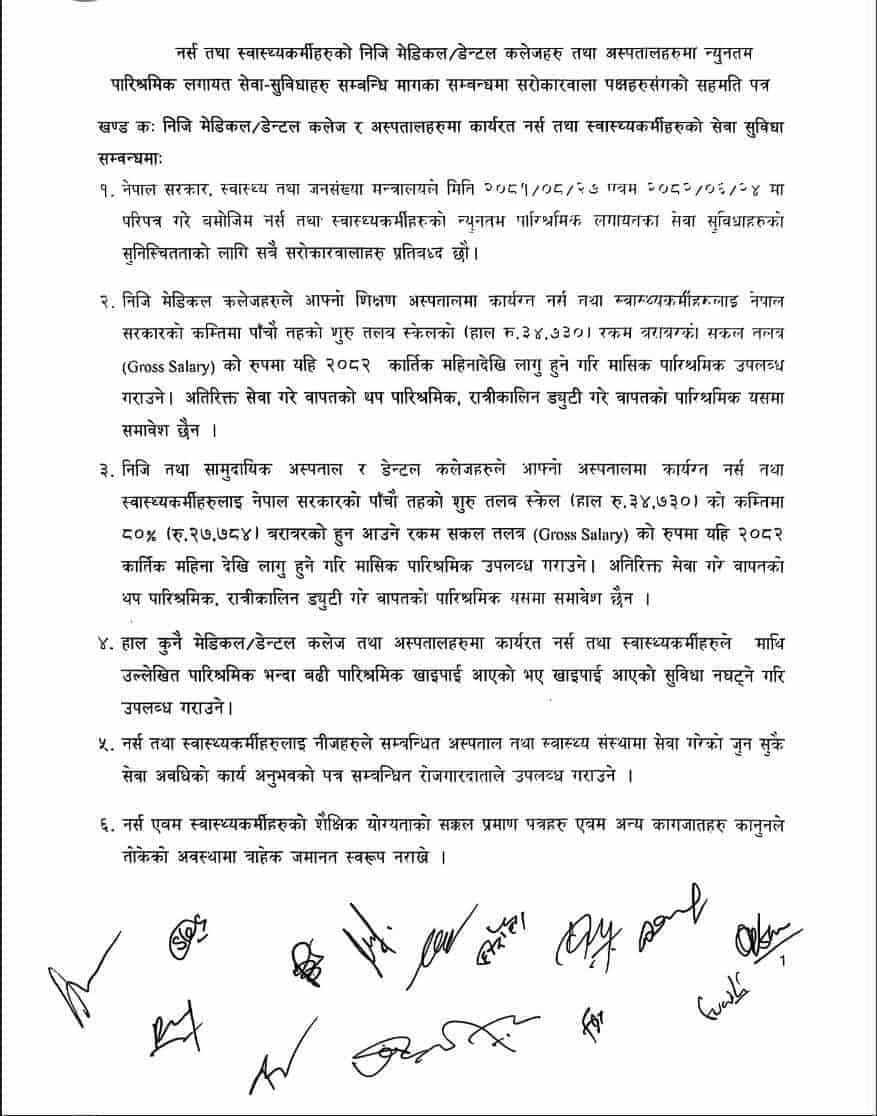 नर्स तथा स्वास्थ्यकर्मीहरुको निजि मेडिकल/डेन्टल कलेजहरु तथा अस्पतालहरुमा न्युनतम
पारिश्रमिक लगायत सेवा-सुविधाहरु सम्बन्धि मागका सम्बन्धमा सरोकारवाला पक्षहरुसंगको सहमति पत्र
खण्ड कः निजि मेडिकल/डेन्टल कलेज र अस्पतालहरुमा कार्यरत नर्स तथा स्वास्थ्यकर्मीहरुको सेवा सुविधा
सम्बन्धमाः
१. नेपाल सरकार, स्वास्थ्य तथा जनसंख्या मन्त्रालयले मिति २०८१/०८/२७ एवम २०८२/०६/२४ मा
परिपत्र गरे बमोजिम नर्स तथा स्वास्थ्यकर्मीहरुको न्युनतम पारिश्रमिक लगायतका सेवा सुविधाहरुको
सुनिस्चितताको लागि सबै सरोकारवालाहरु प्रतिबध्द छौ।
२. निजि मेडिकल कलेजहरुले आफ्नो शिक्षण अस्पतालमा कार्यरत नर्स तथा स्वास्थ्यकर्मीहरुलाइ नेपाल
सरकारको कम्तिमा पाँचौ तहको शुरु तलव स्केलको (हाल रु.३४,७३०) रकम बराबरको सकल तलब
(Gross Salary) को रुपमा यहि २०८२ कार्तिक महिनादेखि लागु हुने गरि मासिक पारिश्रमिक उपलब्ध
गराउने। अतिरिक्त सेवा गरे वापतको थप पारिश्रमिक, रात्रीकालिन ड्युटी गरे वापतको पारिश्रमिक यसमा
समावेश छैन ।
३. निजि तथा सामुदायिक अस्पताल र डेन्टल कलेजहरुले आफ्नो अस्पतालमा कार्यरत नर्स तथा
स्वास्थ्यकर्मीहरुलाइ नेपाल सरकारको पाँचौ तहको शुरु तलव स्केल (हाल रु.३४,७३०) को कम्तिमा
८०% (रु.२७,७८४) बराबरको हुन आउने रकम सकल तलब (Gross Salary) को रुपमा यहि २०८२
कार्तिक महिना देखि लागु हुने गरि मासिक पारिश्रमिक उपलब्ध गराउने। अतिरिक्त सेवा गरे वापतको
थप पारिश्रमिक, रात्रीकालिन ड्युटी गरे वापतको पारिश्रमिक यसमा समावेश छैन ।
४. हाल कुनै मेडिकल/डेन्टल कलेज तथा अस्पतालहरुमा कार्यरत नर्स तथा स्वास्थ्यकर्मीहरुले माथि
उल्लेखित पारिश्रमिक भन्दा बढी पारिश्रमिक खाइपाई आएको भए खाइपाई आएको सुविधा नघट्ने गरि
उपलब्ध गराउने।
५. नर्स तथा स्वास्थ्यकर्मीहरुलाइ नीजहरुले सम्बन्धित अस्पताल तथा स्वास्थ्य संस्थामा सेवा गरेको जुन सुकै
सेवा अवधिको कार्य अनुभवको पत्र सम्बन्धित रोजगारदाताले उपलब्ध गराउने ।
६. नर्स एवम स्वास्थ्यकर्मीहरुको शैक्षिक योग्यताको सक्कल प्रमाण पत्रहरु एवम अन्य कागजातहरु कानुनले
तोकेको अवस्थामा बाहेक जमानत स्वरूप नराखे ।